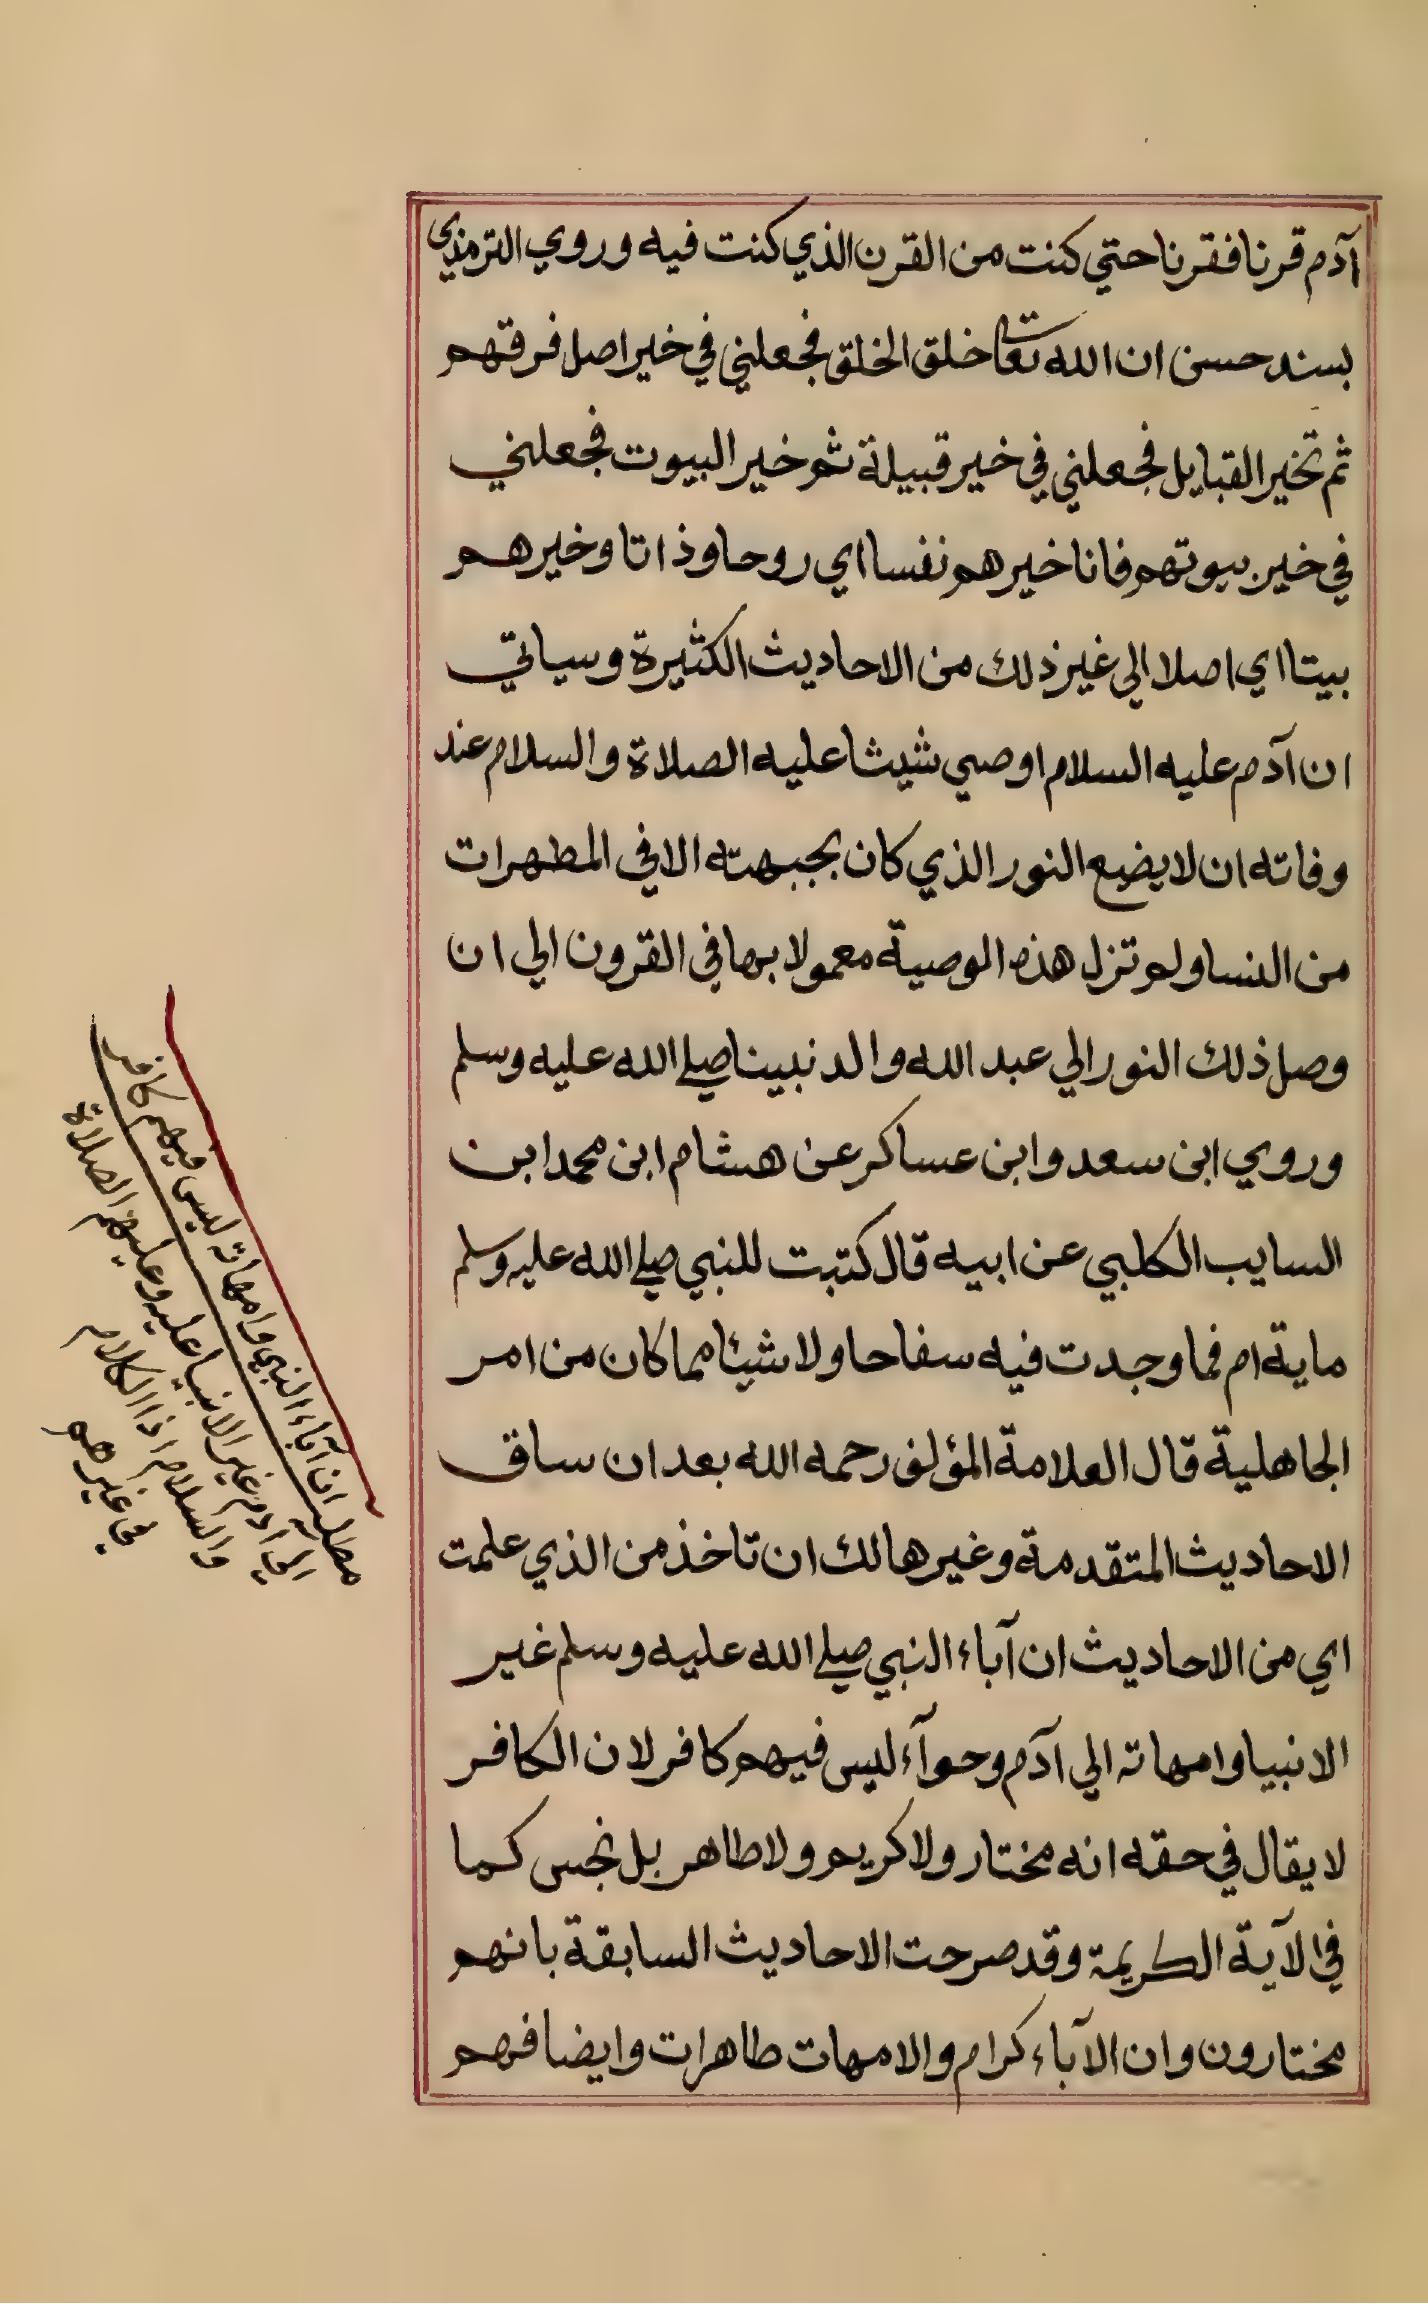 آدم قرنا فقرنا حتي كنت من القرن الذي كنت فيه وروي الترمذي
بسند حسن ان الله تعالى خلق الخلق فجعلني في خير اصل فرقهم
ثم تخير القبايل فجعلني في خير قبيلة ثم خير البيوت فجعلني
في خير بيوتهم فانا خيرهم نفسا اي روحا وذاتا وخيرهم
بيتا اي اصلا الي غير ذلك من الاحاديث الكثيرة وسياتي
ان آدم عليه السلام اوصي شيثا عليه الصلاة والسلام عند
وفاته ان لا يضع النور الذي كان بجبهته الا في المطهرات
من النسا ولم تزل هذه الوصية معمولا بها في القرون الي ان
وصل ذلك النور الي عبد الله والد نبينا صلى الله عليه وسلم
وروي ابن سعد وابن عساكر عن هشام ابن محمد ابن
السايب الكلبي عن ابيه قال كتبت للنبي صلى الله عليه وسلم
ماية ام فما وجدت فيه سفاحا ولا شيئا مما كان من امر
الجاهلية قال العلامة المؤلف رحمه الله بعد ان ساق
الاحاديث المتقدمة وغيرها لك ان تاخذ من الذي علمت
اي من الاحاديث ان آباء النبي صلى الله عليه وسلم غير
الانبيا وامهاته الي آدم وحوآء ليس فيهم كافر لان الكافر
لا يقال في حقه انه مختار ولا كريم ولا طاهر بل نجس كما
في الآية الكريمة وقد صرحت الاحاديث السابقة بانهم
مختارون وان الآباء كرام والامهات طاهرات وايضا فهم
مطلب ان آباء النبي وامهاته ليس فيهم كافر
الي آدم غير الانبيا عليه وعليهم الصلاة
والسلام اذ الكلام
في غيرهم